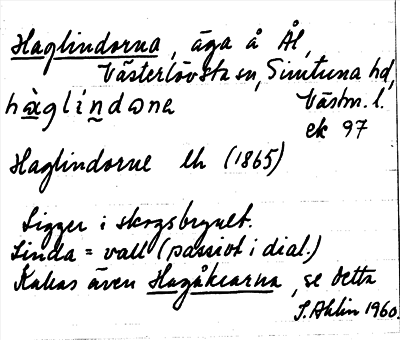 Haglindorna, äga å Ål,
Västerlövsta sn, Simtuna hd,
hàglindana Västm. l.
ek 97
Haglindorne lh (1865)
Ligger i skogsbrynet.
Linda = vall (passivt i dial.)
Kallas även Hagåkrarna, se detta
S. Ahlin 1960.